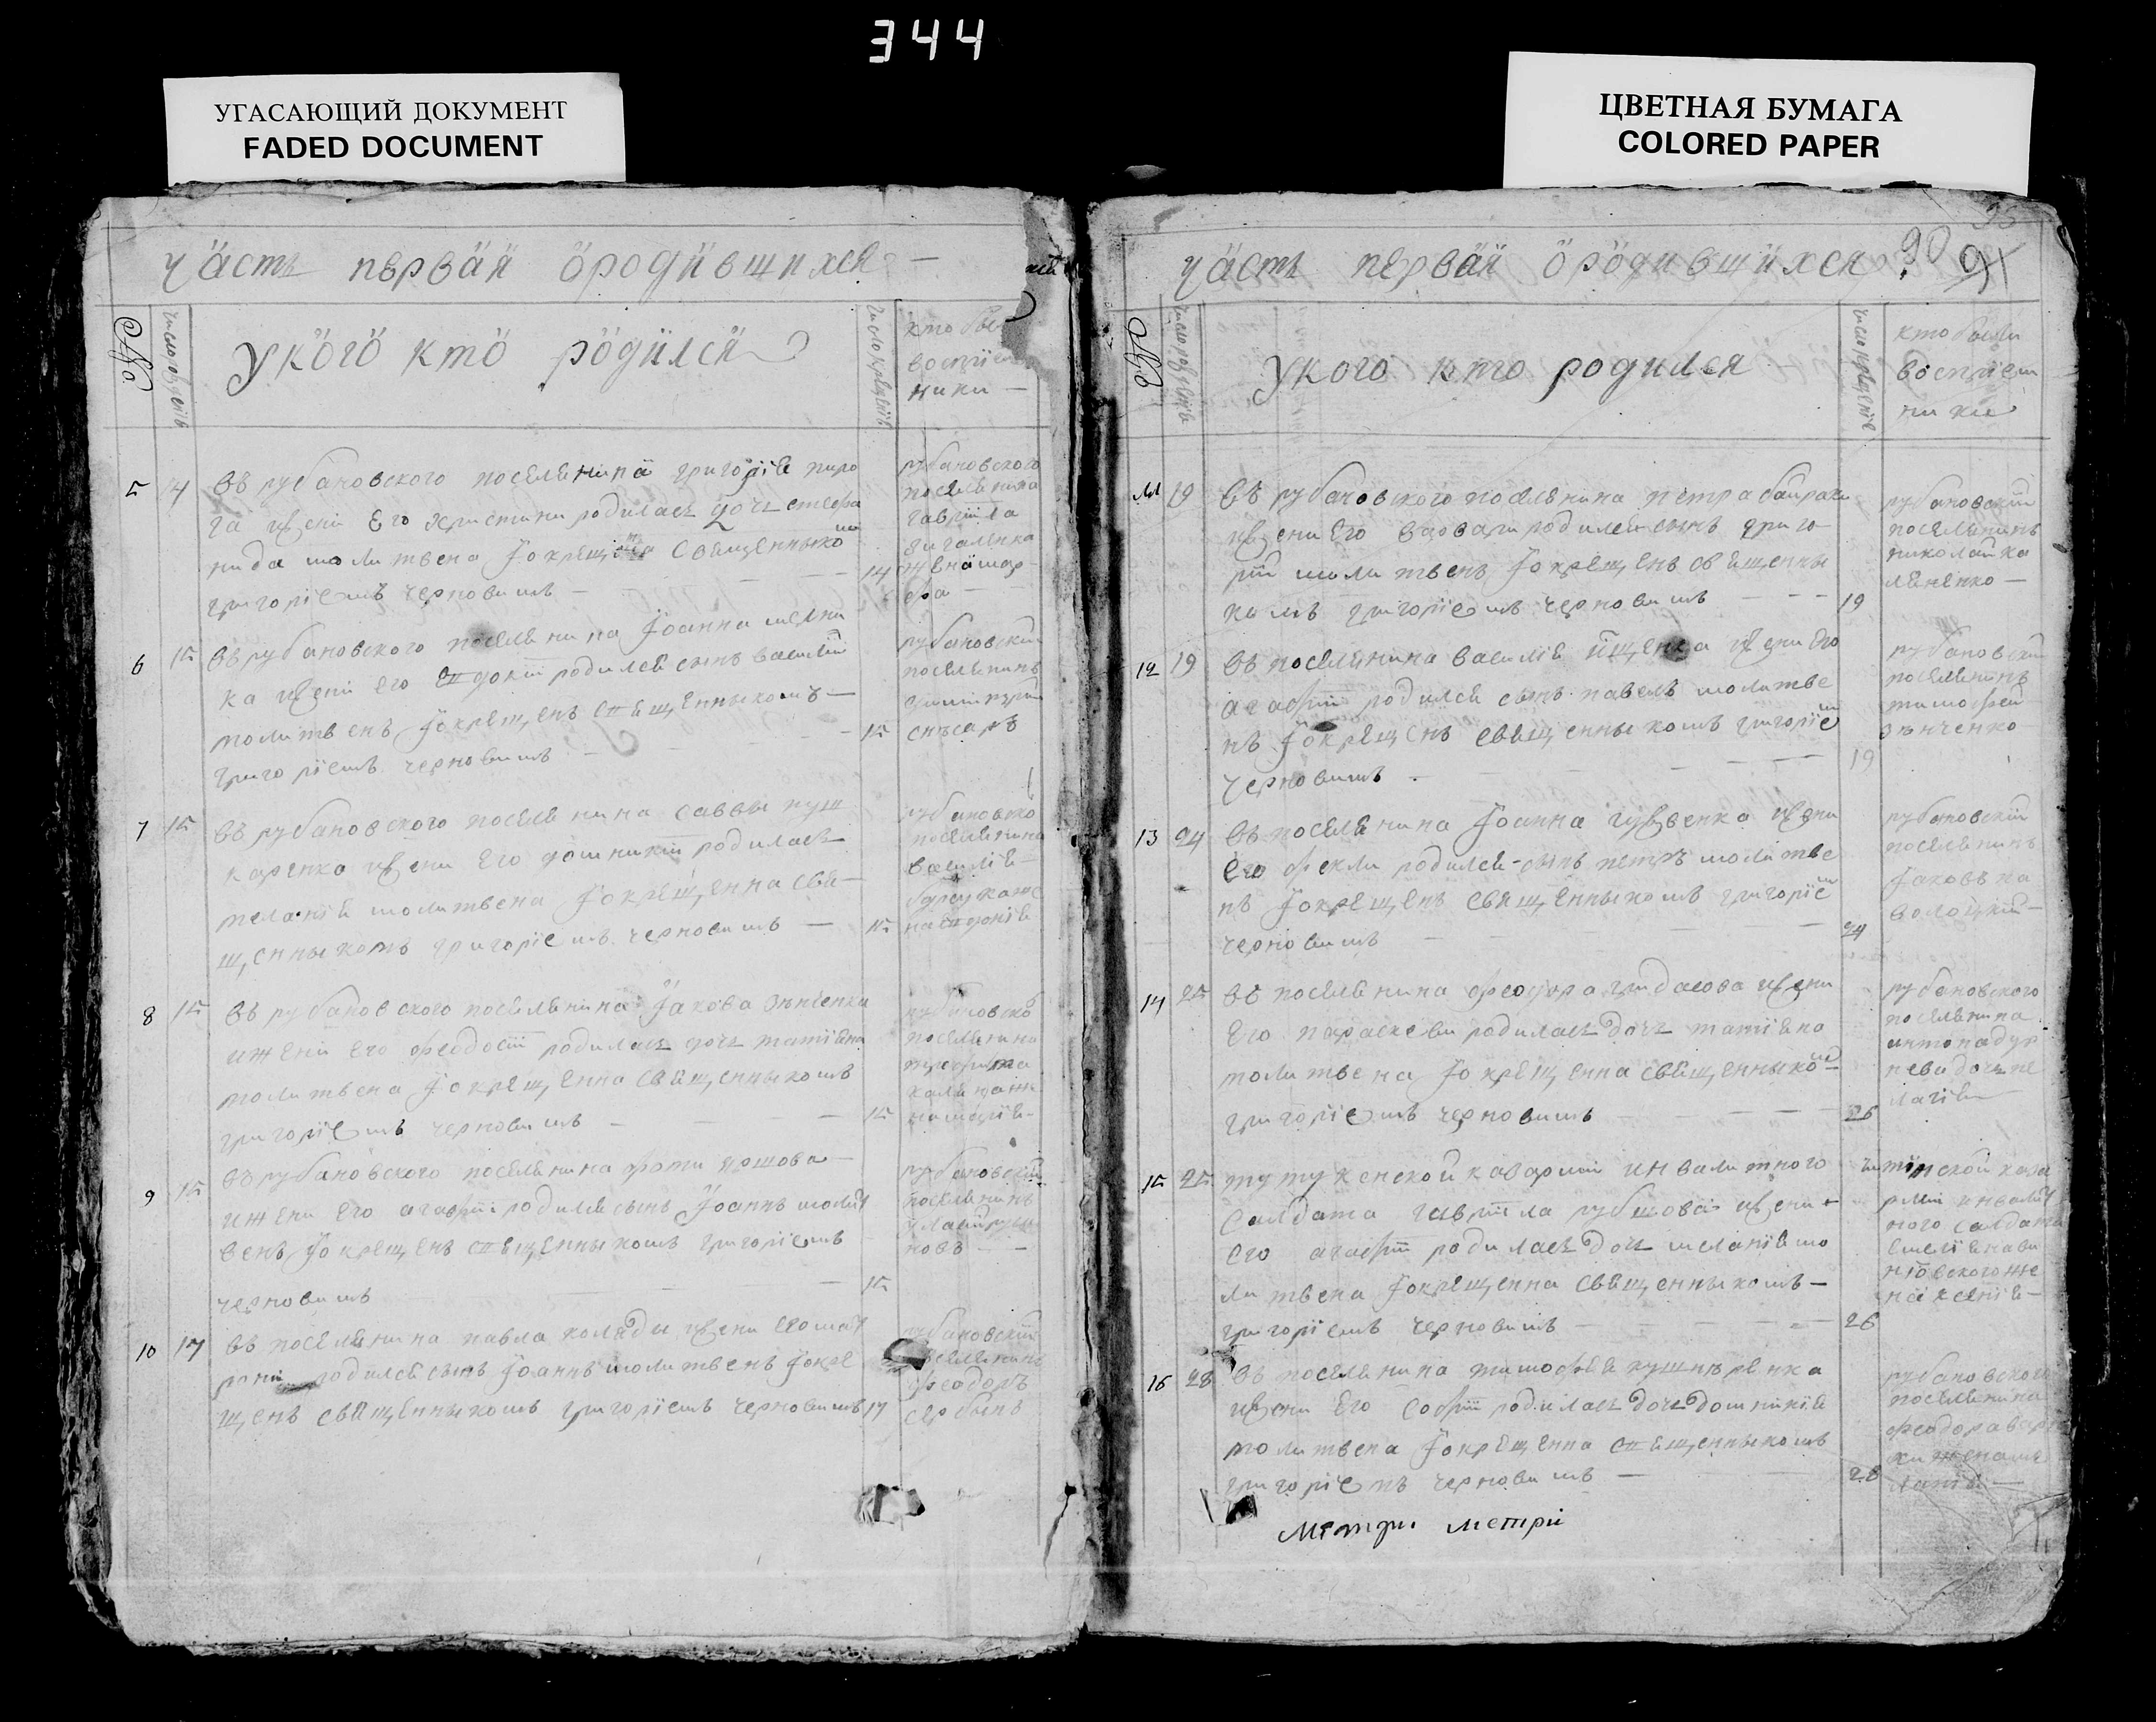 344
УГАСАЮЩИЙ ДОКУМЕНТ
FADED DOCUMENT
ЦВЕТНАЯ БУМАГА
COLORED PAPER
часть первая ородившихся
№
число рожденїя
укого кто родился
число крещенїя
кто бы
воспрїем
ники
5 14
въ рубановского поселянина григорїя пиро
га ижени его христини родилась дочь стефа
нида молитвена їокрещена священнико
григорїемъ черновимъ
14
рубановского
поселянина
гаврїила
жена мар
фа
6 15
въ рубановского поселянина їоанна мелни
ка ижени его евдокїи родился сынъ василїй
молитвенъ їокрещенъ священникомъ
григорїемъ черновимъ
15
рубановскїй
поселянинъ
димитрїй
слѣсаръ
7 15
въ рубановского поселянина саввы куш
наренка ижени его домникїи родилась
меланїя молитвена їокрещенна свя
щенникомъ григорїемъ черновимъ
15
рубановско
поселянина
василїя
8 15
въ рубановского поселянина їакова зѣнченка
ижени его феодосїи родилась дочь татїяна
молитвена їокрещенна священникомъ
григорїемъ черновимъ
15
рубановско
поселянина
трофима
9 15
въ рубановского поселянина фоти
ижени его агафїи родился сынъ їоаннъ молит
венъ їокрещенъ священникомъ григорїемъ
черновимъ
15
рубановскїй
поселянинъ
10 17
въ поселянина павла коляди ижени его мат
рони родился сынъ їоаннъ молитвенъ їокре
щенъ священникомъ григорїемъ черновимъ
17
рубановскїй
поселянинъ
феодоръ
сербинъ
часть первая ородившихся
90 91
№
число рожденїя
укого кто родился
число крещенїя
кто были
воспрїем
ники
11 19
въ рубановского поселянина петра байрака
ижени его варвари родился сынъ григо
рїй молитвенъ їокрещенъ священни
комъ григорїемъ черновимъ
19
рубановскїй
поселянинъ
николай ка
ляненко
12 19
въ поселянина василїя їщенка ижени его
агафїи родился сынъ павелъ молитве
нъ їокрещенъ священникомъ григорїем
черновимъ
19
рубановскїй
поселянинъ
тимофей
зѣнченко
13 24
въ поселянина їоанна ижени
его фекли родился сынъ петръ молитве
нъ їокрещенъ священникомъ григорїем
черновимъ
24
рубановскїй
поселянинъ
їаковъ на
волоцкїй
14 25
въ поселянина феодора гридасова ижени
его параскеви родилась дочь татїяна
молитвена їокрещенна священником
григорїемъ черновимъ
26
рубановского
поселянина
антона дуд
нева дочь пе
лагїя
15 25
инвалитного
салдата гаврїила рубцова ижени
его агафїи родилась дочь меланїя мо
литвена їокрещенна священникомъ
григорїемъ черновимъ
26
инвалит
ного салдата
емелїяна ви
нювского же
на ксенїя
16 28
въ поселянина тимофея кушнѣренка
ижени его софїи родилась дочь домникїя
молитвена їокрещенна священникомъ
григорїемъ черновимъ
28
рубановского
поселянина
феодора
метри метри